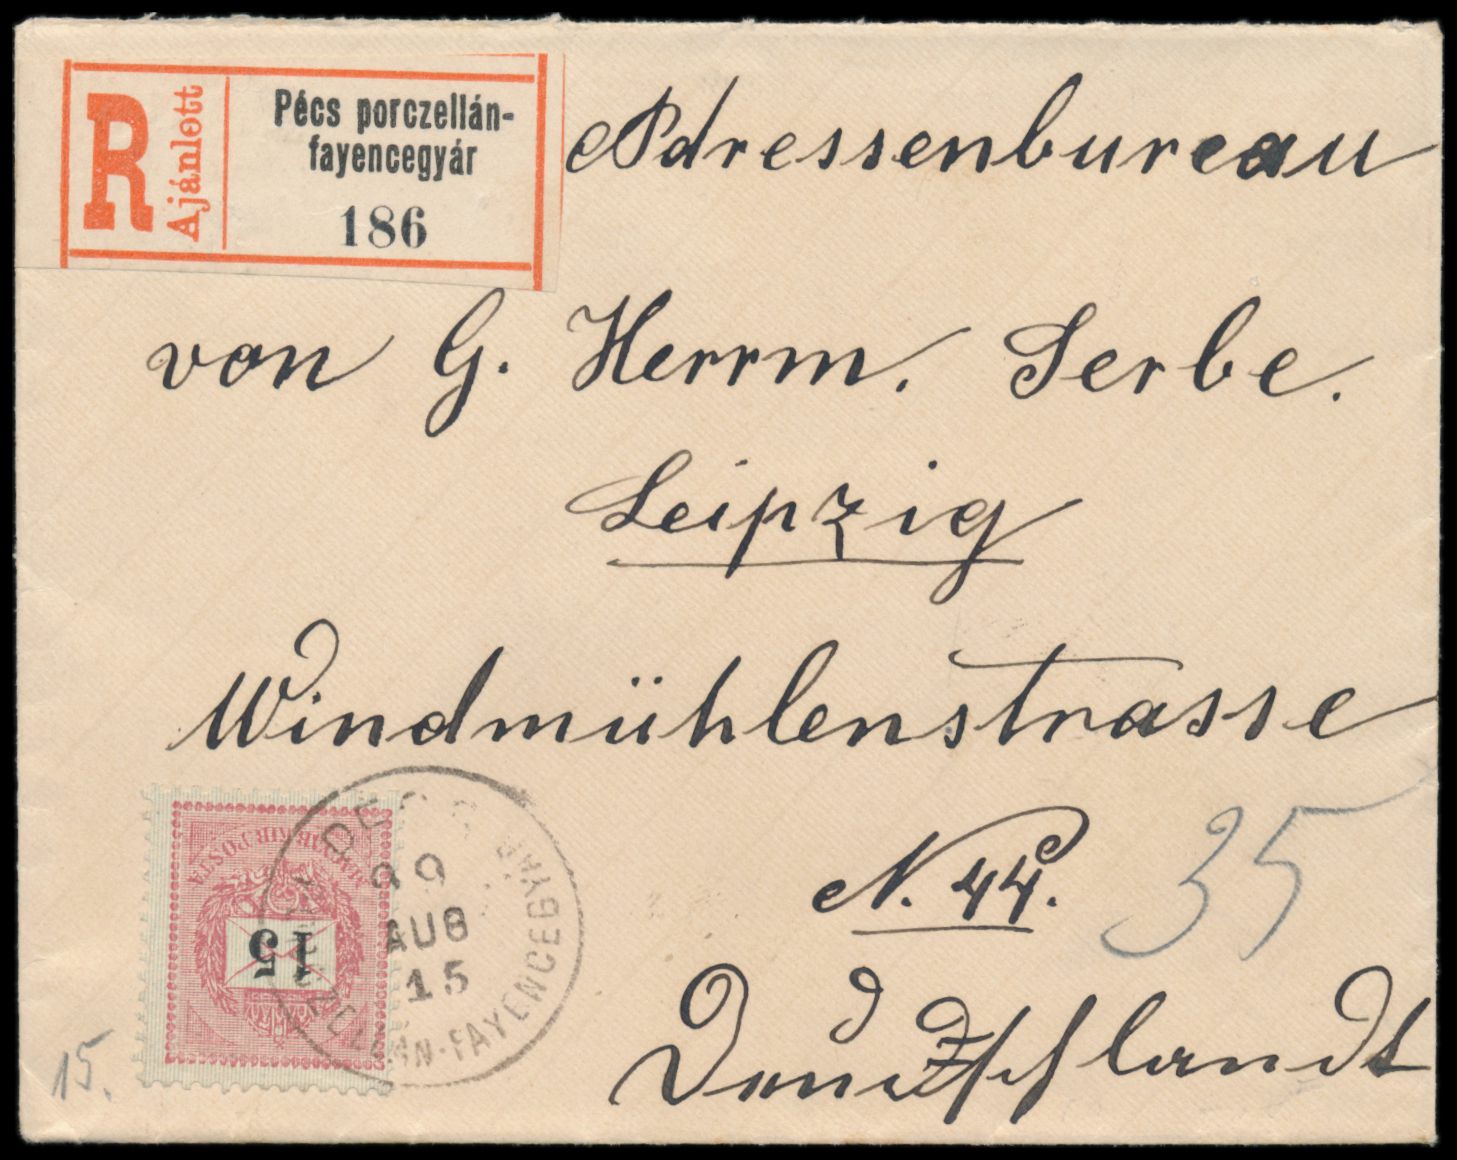 R Ajánlott
Pécs porczellán-
fayencegyár
186
Adressenbureau
von G. Herrm. Serbe.
Leipzig
Windmühlenstrasse
N. 44.
35
Deutschlandt
MAGYAR KIR. POSTA
15
PÉCS
99
AUG
15
PORCZELLÁN-FAYENCEGYÁR
15.